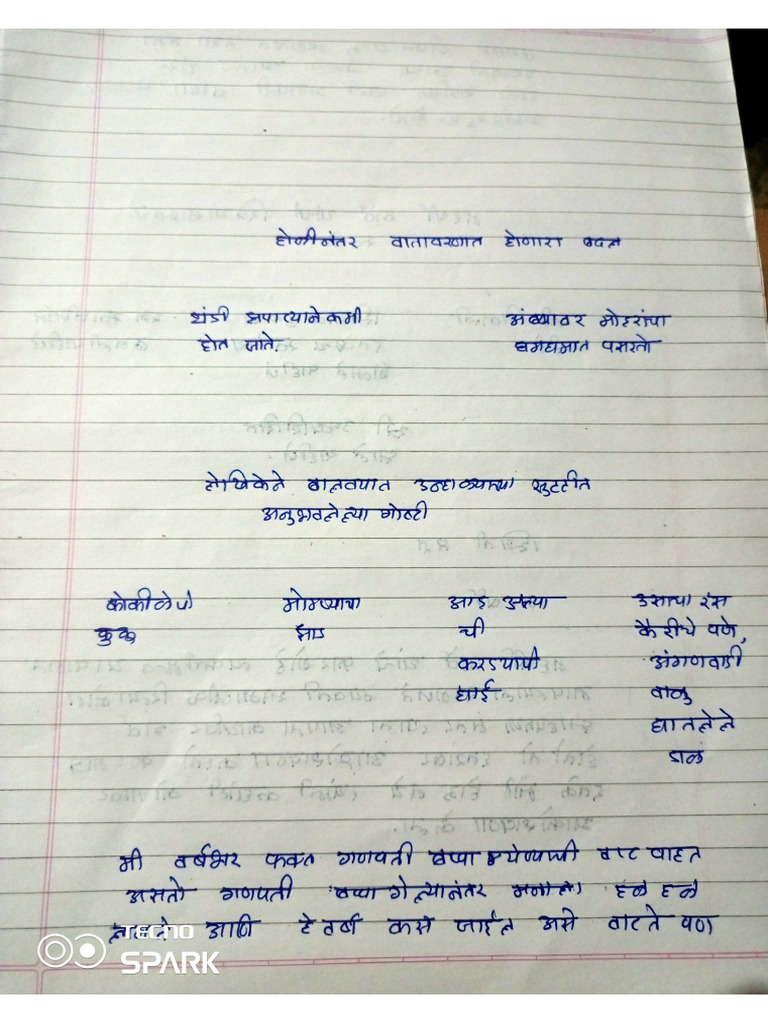 होळीनंतर वातावरणात होणारा बदल
थंडी झपाट्याने कमी
होत जाते.
अंब्यावर मोहरांचा
घमघमात पसरतो
लेखिकेने बालवयात उन्हाळ्याच्या सुट्टीत
अनुभवलेल्या गोष्टी
कोकीळेचे
कुकु
मोगऱ्याचा
झाड
आइ
ची
करडयाची
घाई
उसाचा रस
कैरीचे पणे,
अंगणवाडी
वाळु
घातलेले
डाळं
मी वर्षभर फक्त गणपती बप्पा येण्याची वाट वाहत
असतो गणपती बप्पा गेल्यानंतर मनाला हळ हळ
लागते आणि हे वर्ष कसे जाईल असे वाटते पण
TECNO
SPARK